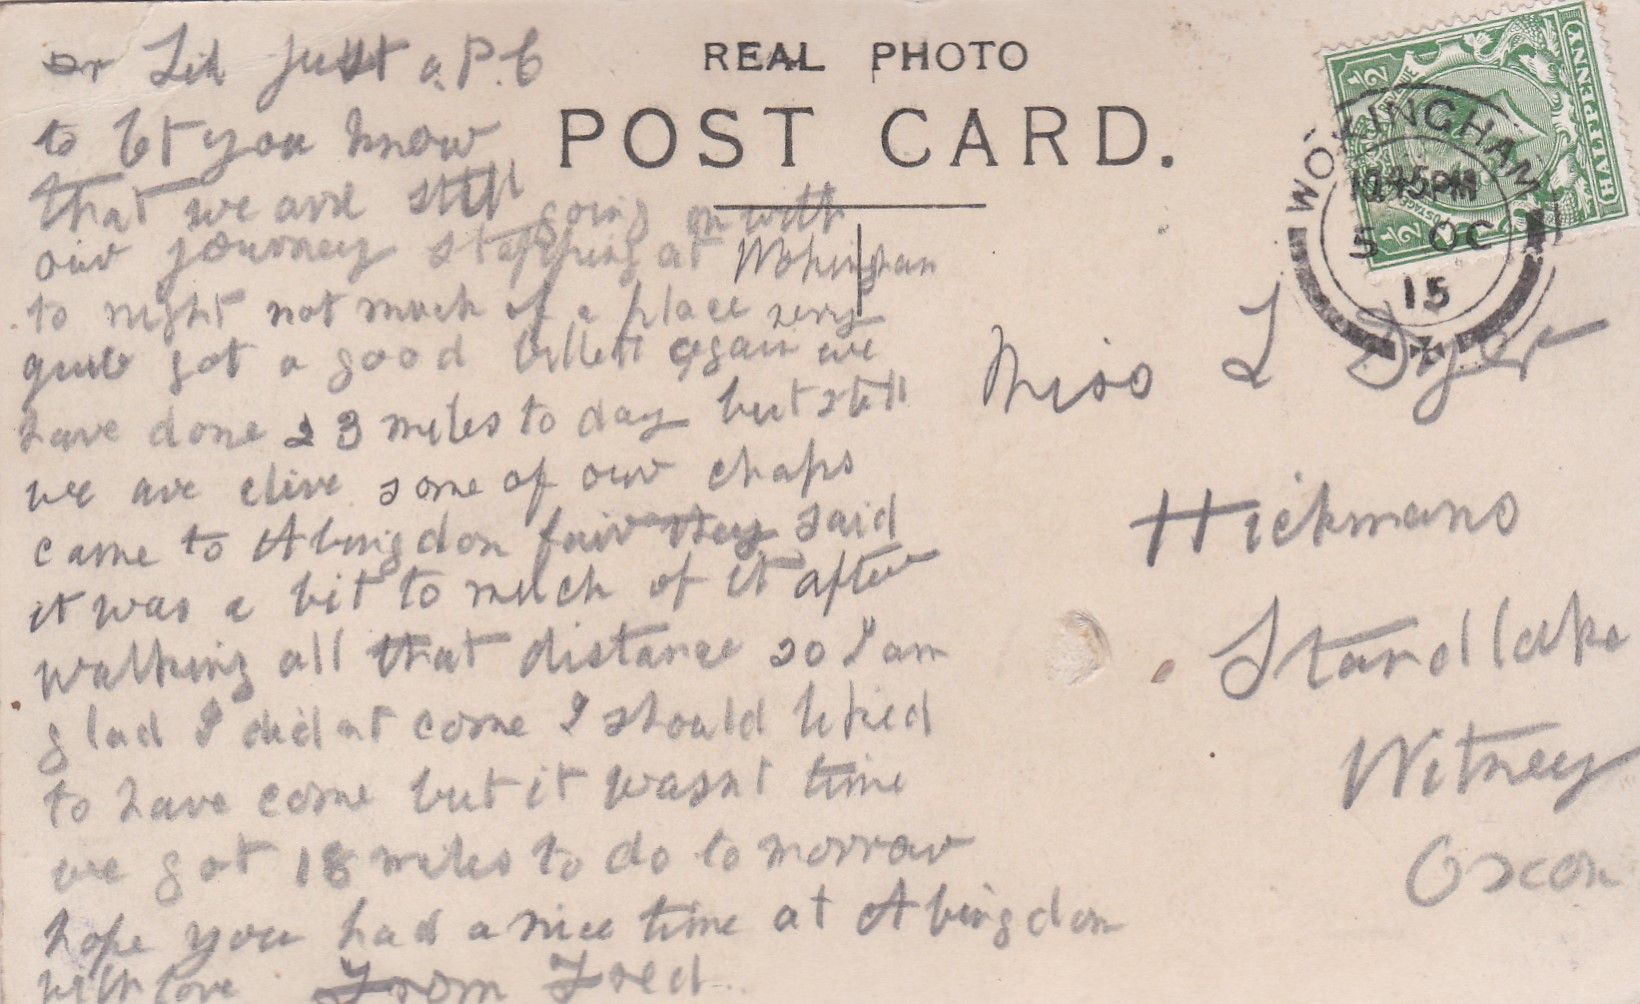 Dr Lil just a P.C
to let you know
that we are still
going on with
our journey stopping at Wokingham
to night not much of a place very
quite got a good billett again we
have done 23 miles to day but still
we are alive some of our chaps
came to Abingdon fair they said
it was a bit to much of it after
walking all that distance so I am
glad I did nt come I should liked
to have come but it wasnt time
we got 18 miles to do to morrow
hope you had a nice time at Abingdon
with love From Fred
REAL PHOTO
POST CARD.
HALFPENNY
1/2
REVENUE
POSTAGE
1/2
WOKINGHAM
10.45PM
5 OC
15
Miss L Dyer
Hickmans
Standlake
Witney
Oxon